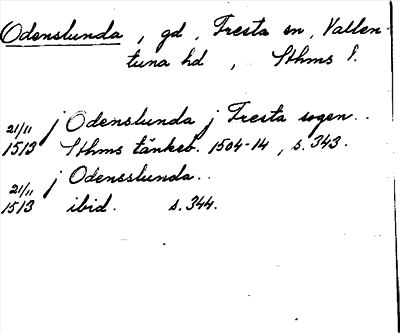 Odenslunda, gd, Fresta sn, Vallen-
tuna hd, Sthms l.
21/11 1513 j Odenslunda j Fresta sogen..
Sthms tänkeb. 1504-14, s. 343.
21/11 1513 j Odensslunda..
ibid. s. 344.